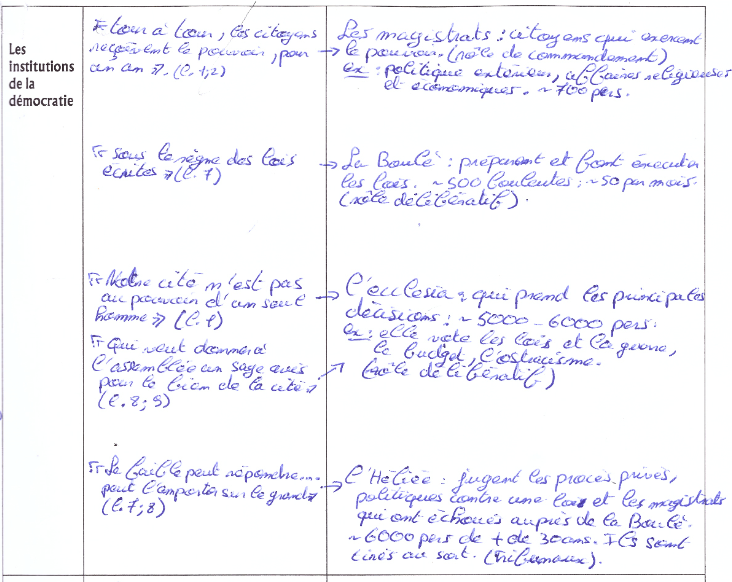 Les
institutions
de la
démocratie
« tour à tour, les citoyens
reçoivent le pouvoir, pour
un an ». (l. 1;2)
→ Les magistrats : citoyens qui exercent
le pouvoir. (rôle de commandement)
ex : politique exterieure, affaires religieuses
et économiques. ~ 700 pers.
« Sous le règne des lois
écrites » (l. 7)
→ La Boulé : préparent et font éxecuter
les lois. ~ 500 bouleutes ; ~ 50 par mois.
(rôle délibératif).
« Notre cité n'est pas
au pouvoir d'un seul
homme » (l. 1)
« Qui veut donner à
l'assemblée un sage avis
pour le bien de la cité »
(l. 8; 9)
→ L'ecclesia : qui prend les principales
décisions : ~ 5000 - 6000 pers.
ex : elle vote les lois et la guerre,
le budget, l'ostracisme.
(rôle délibératif)
« Le faible peut répondre...
peut l'emporter sur le grand »
(l. 7; 8)
→ L'Héliée : jugent les procès privés,
politiques contre une lois et les magistrats
qui ont échoués auprès de la Boulé.
~ 6000 pers de + de 30 ans. Ils sont
tirés au sort. (Tribunaux).